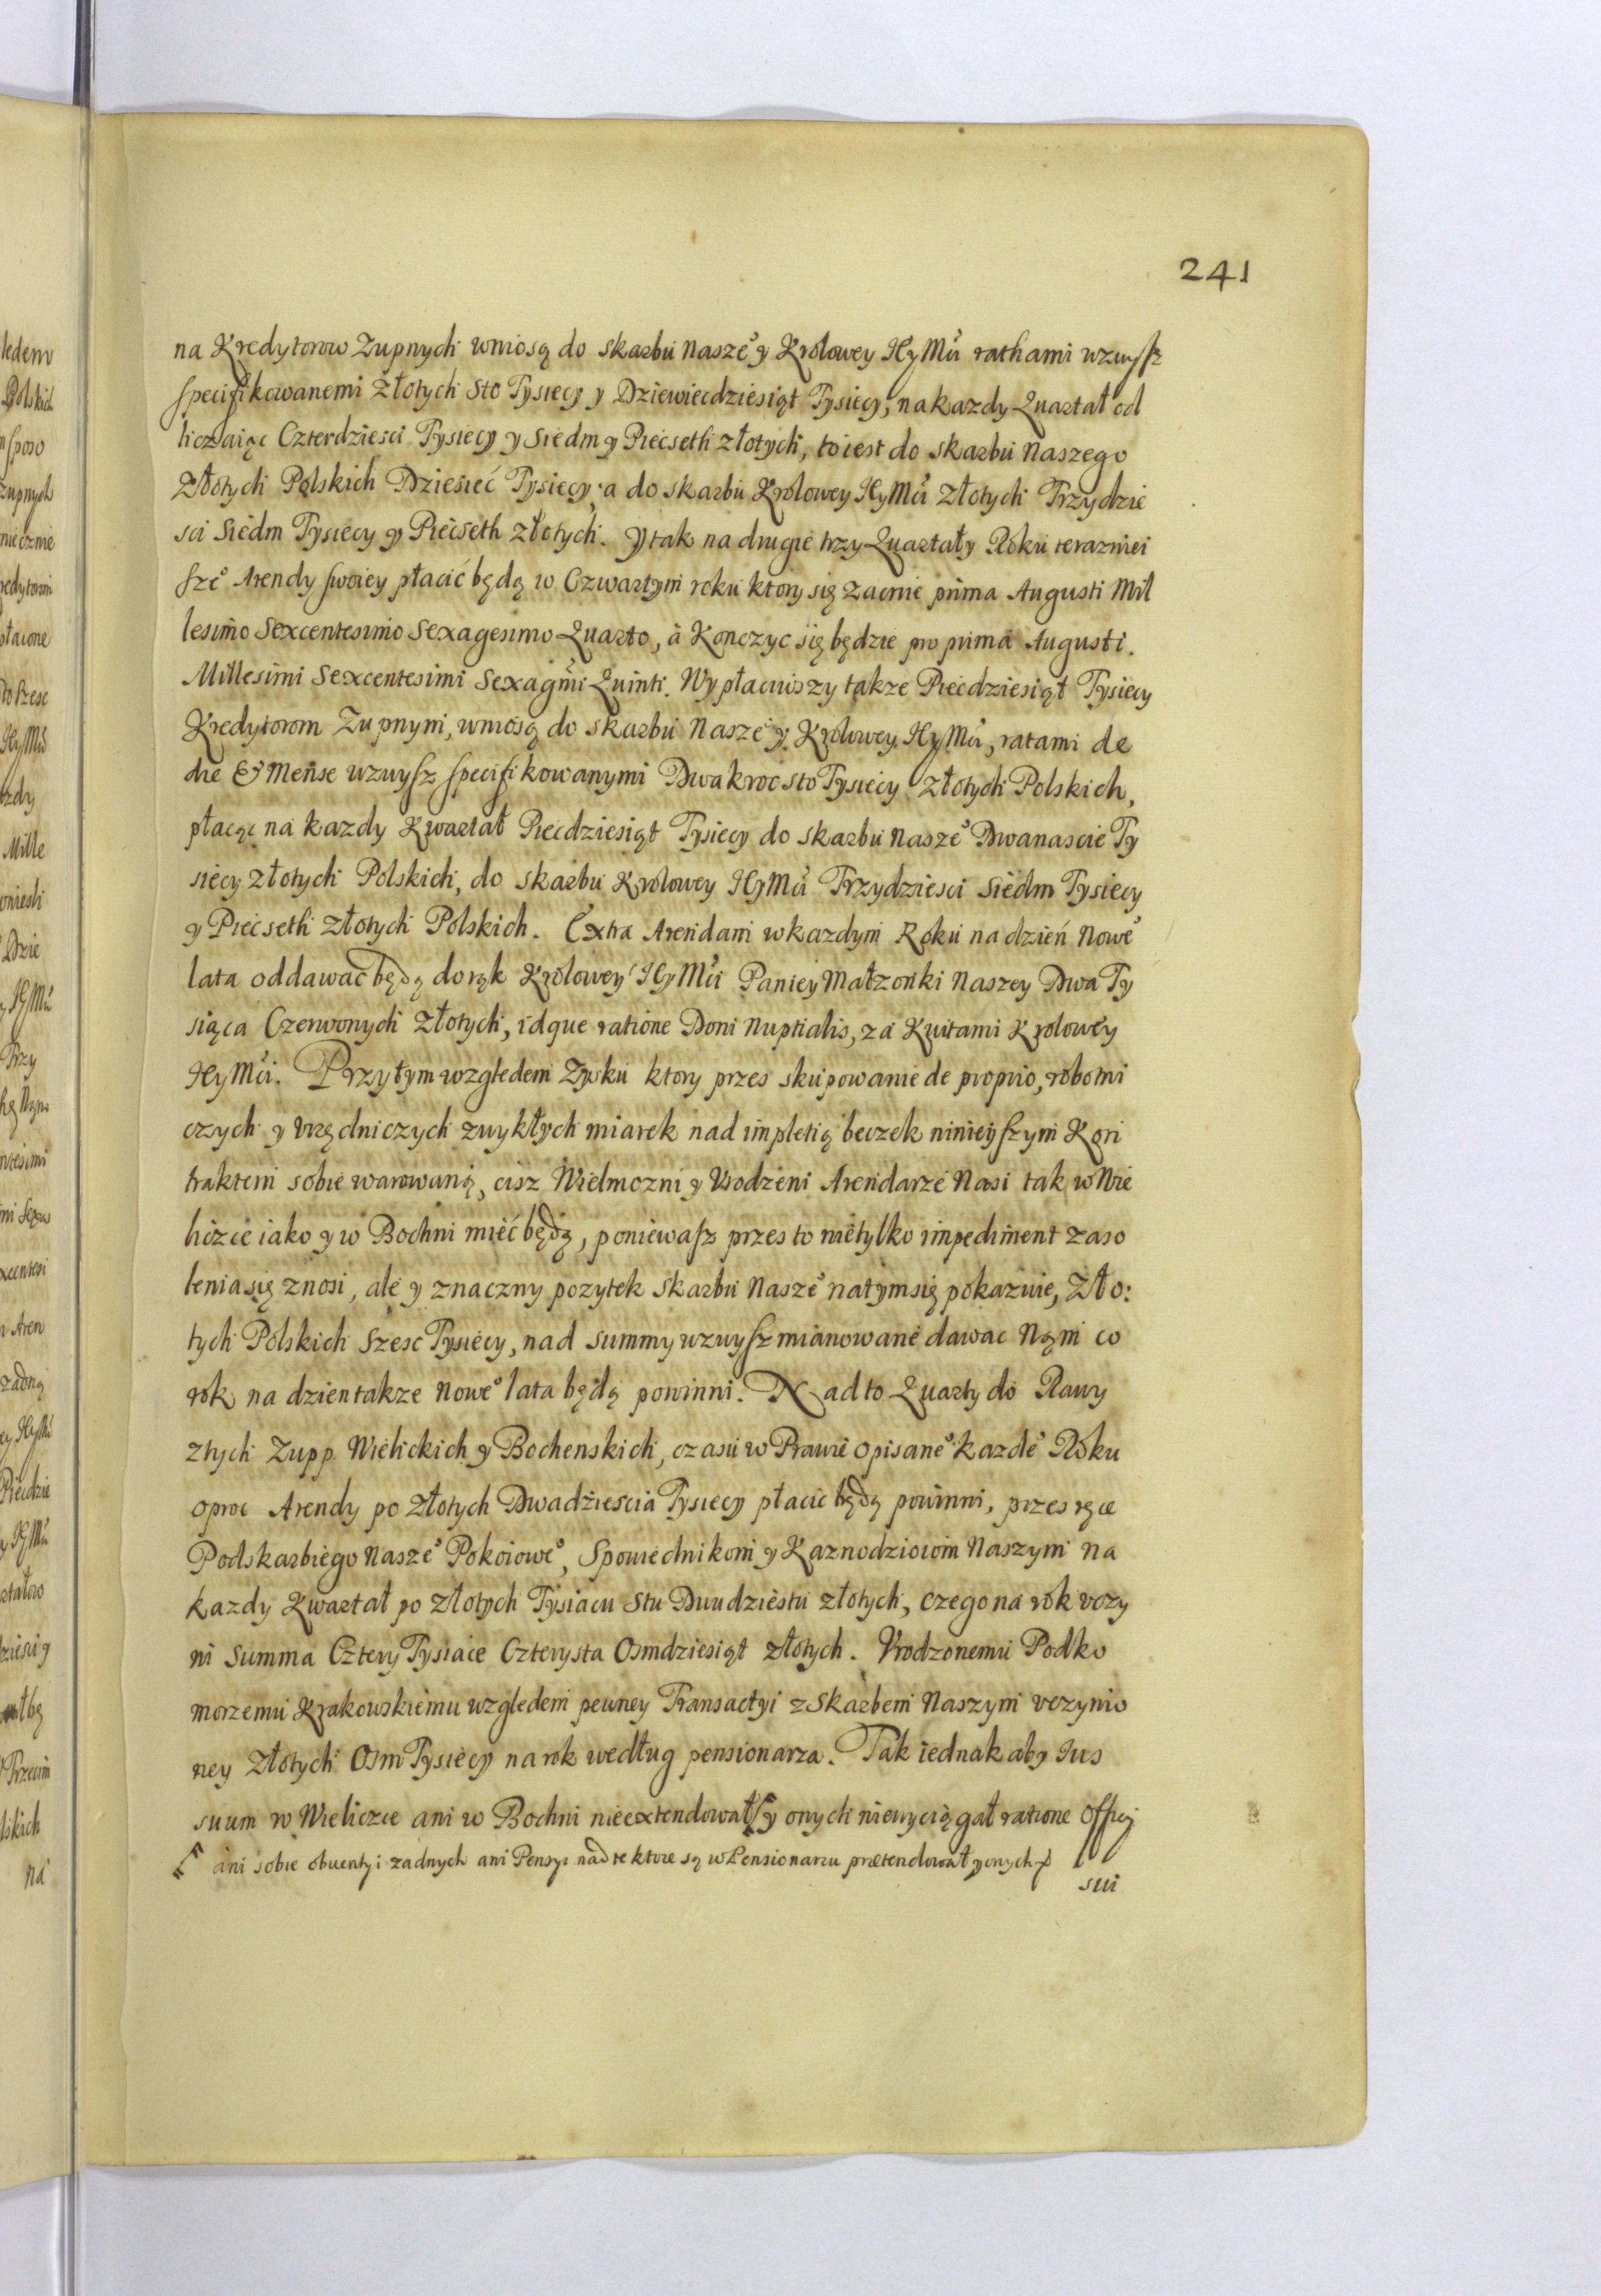 241
na Kredytorow Zupnych wniosą do skarbu naszeº y Krolowey JeyMći rathami wzwysz
specifikowanemi złotych sto Tysięcy y Dziewiecdziesiąt Tysięcy, na kazdy Quartał od
liczaiąc Czterdziesci Tysięcy y Siedm y Piećseth złotych, to iest do skarbu naszego
złotych Polskich Dziesieć Tysięcy, a do skarbu Krolowey JeyMći złotych Trzydzie
sci Siedm Tysięcy y Piećseth złotych. Y tak na drugie trzy Quartały Roku terazniei
szeº Arendy swoiey płacić będą w Czwartym roku ktory się zacnie prima Augusti Mil
lesimo Sexcentesimo Sexagesimo Quarto, à Konczyc się będzie pro prima Augusti.
Millesimi Sexcentesimi Sexagmi Quinti. Wypłaciwszy takze Piećdziesiąt Tysięcy
Kredytorom Zupnym, wniosą do skarbu naszeº y Krolowey JeyMći, ratami de
die & Mense wzwysz specifikowanymi Dwakroc sto Tysięcy złotych Polskich,
płacąc na kazdy Kwartał Piecdziesiąt Tysięcy do skarbu naszeº Dwanascie Ty
sięcy złotych Polskich, do skarbu Krolowey JeyMći Trzydziesci Siedm Tysięcy
y Piećseth złotych Polskich. Extra Arendam w kazdym Roku na dzień noweº
lata oddawać będą do rąk Krolowey JeyMći Paniey Małzonki Naszey Dwa Ty
siąca Czerwonych złotych, idque ratione Doni Nuptialis, za Kwitami Krolowey
JeyMći. Przytym względem Zysku ktory przes skupowanie de proprio, robotni
czych y vrzędniczych zwykłych miarek nad impletią beczek ninieyszym Kon
traktem sobie warowaną, cisz Wielmozni y Vrodzeni Arendarze Nasi tak w Wie
liczce iako y w Bochni mieć będą, poniewasz przes to nietylko impediment zaso
lenia się znosi, ale y znaczny pozytek skarbu naszeº natym się pokazuie, Zło:
tych Polskich szesc Tysięcy, nad summy wzwysz mianowane dawac Nąm co
rok na dzien takze noweº lata będą powinni. Nadto Quarty do Rawy
z tych Zupp Wielickich y Bochenskich, czasu w Prawie opisaneº kazdeº Roku
oproc Arendy po złotych Dwadziescia Tysięcy płacić będą powinni, przes ręce
Podskarbiego naszeº Pokoioweº, Spowiednikom y Kaznodzioiom Naszym na
kazdy Kwartał po złotych Tysiącu stu Dwudziestu złotych, czego na rok vczy
ni summa Cztery Tysiące Czterysta Osmdziesiąt złotych. Vrodzonemu Podko
morzemu Krakowskiemu względem pewney Transactyi z Skarbem Naszym vczynio
ney złotych Osm Tysięcy na rok według pensionarza. Tak iednak aby Jus
suum w Wieliczce ani w Bochni nie extendował y onych niewyciągał ratione Officij
ani sobie obuentyi zadnych ani Pensyi nad te ktore są w Pensionarzu prætendował y onych
sui